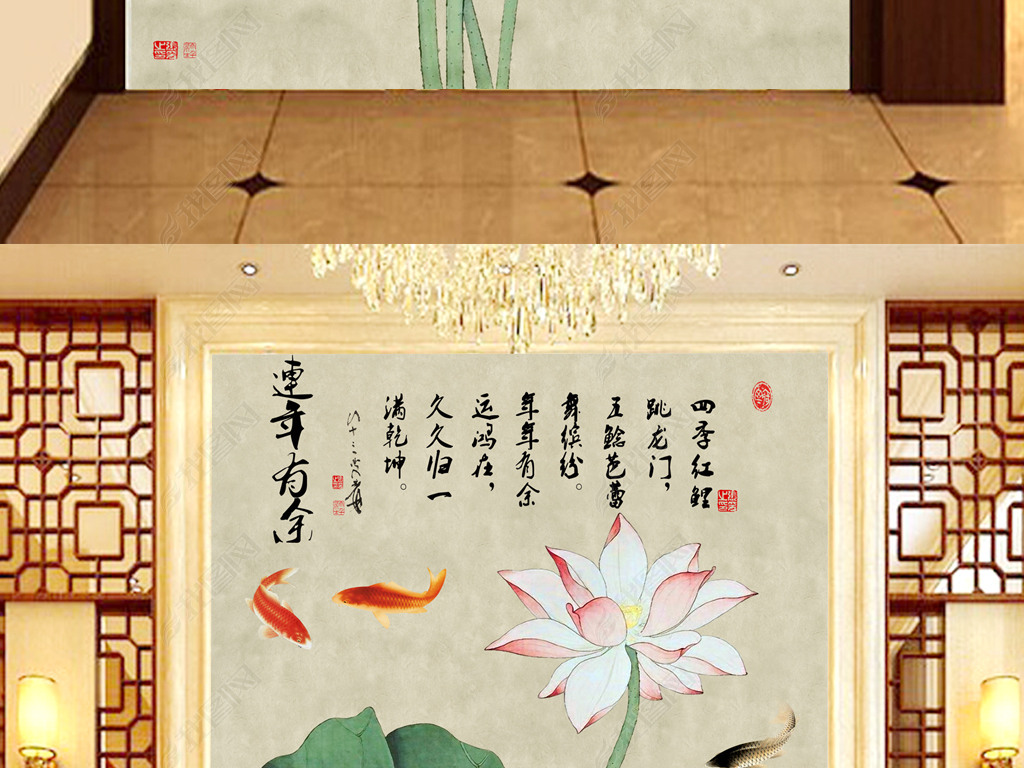 四季红鲤
跳龙门，
五鲶芭蕾
舞缤纷。
年年有余
运鸿在，
久久归一
满乾坤。
連年有余